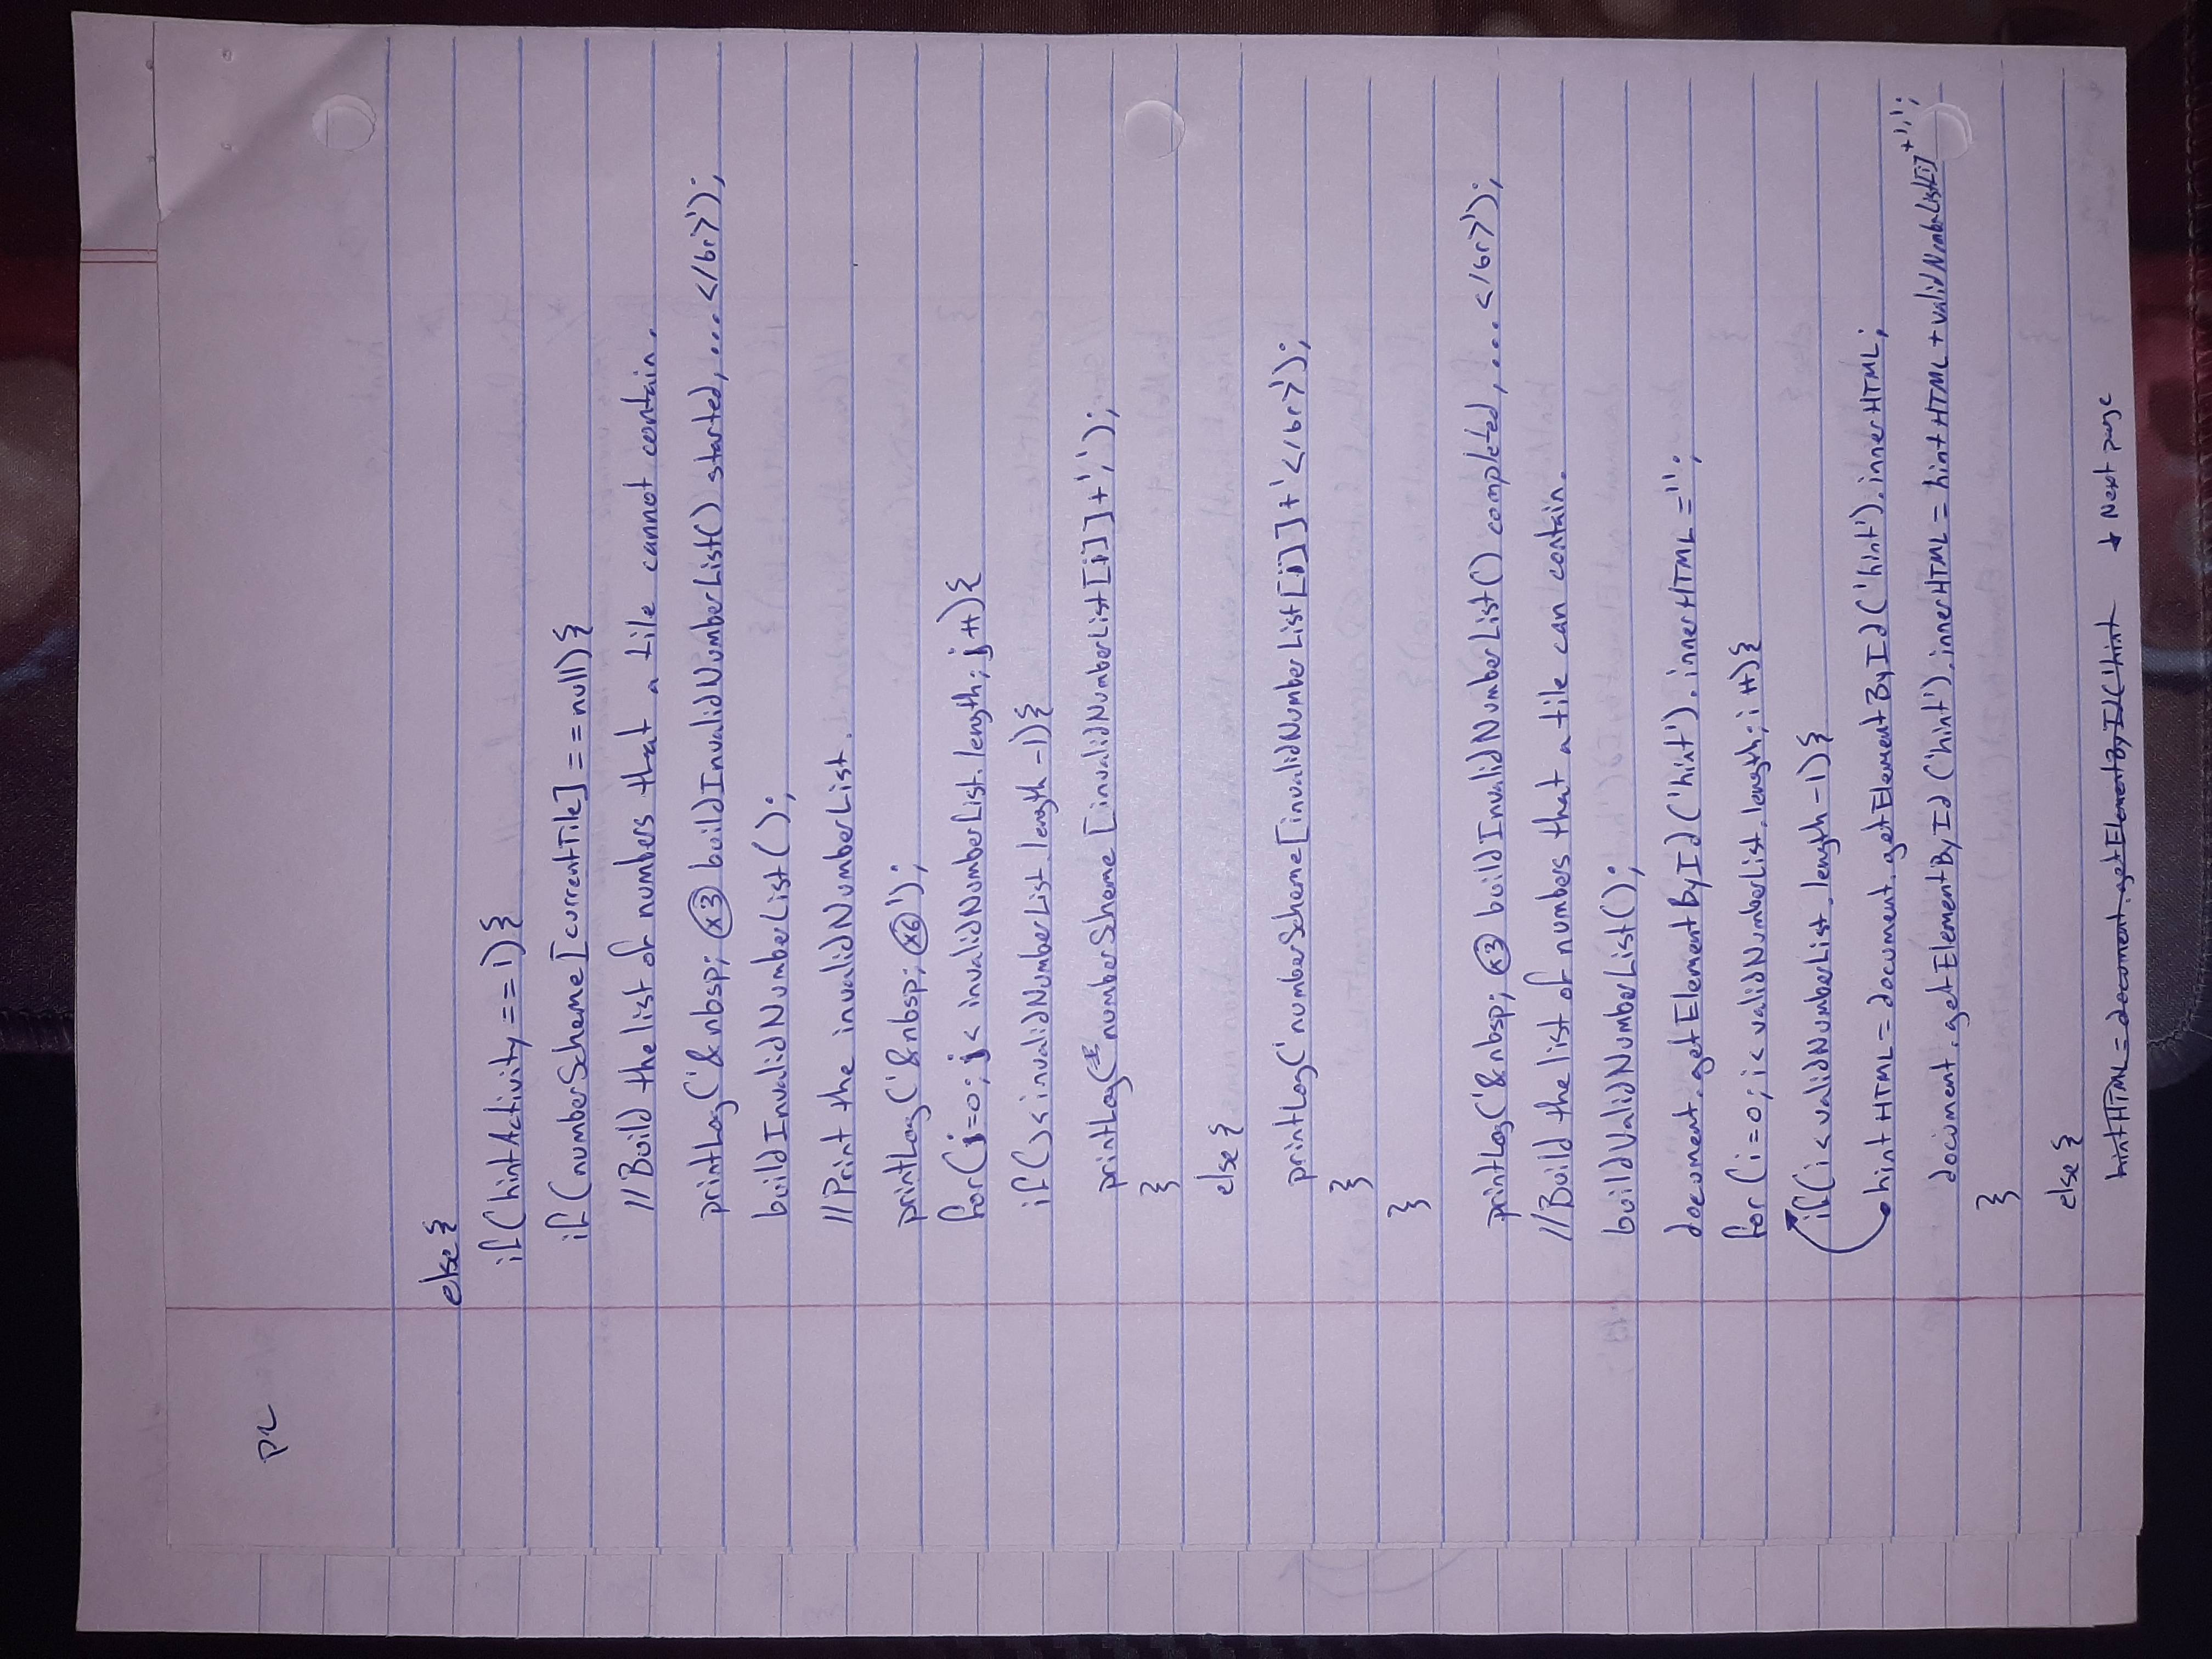 p2
else {
if(hintActivity == 1){
if(numberScheme[currentTile] == null){
//Build the list of numbers that a tile cannot contain.
printLog('&nbsp; x3 buildInvalidNumberList() started, ... </br>');
buildInvalidNumberList();
//Print the invalidNumberList.
printLog('&nbsp; x6');
for(j=0; j< invalidNumberList.length; j++){
if(j< invalidNumberList.length -1){
printLog( numberScheme[invalidNumberList[j]]+',');
}
else {
printLog('numberScheme[invalidNumberList[j]]+'</br>');
}
}
printLog('&nbsp; x3 buildInvalidNumberList() completed, ... </br>');
//Build the list of numbers that a tile can contain.
buildValidNumberList();
document.getElementById('hint').innerHTML ='';
for (i=0; i< validNumberList.length; i++){
if(i< validNumberList.length -1){
hintHTML = document.getElementById('hint').innerHTML;
document.getElementById('hint').innerHTML = hintHTML + validNumberList[i] +',';
}
else {
hintHTML = document.getElementById('hint ↓ Next page